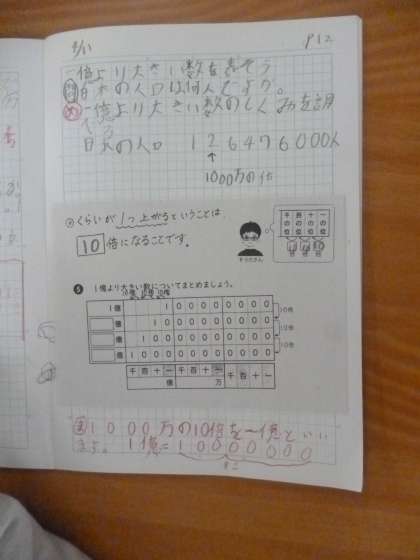 P12
一億より大きい数を表そう
日本の人口は何人ですか。
一億より大きい数のしくみを調べる
日本の人口 126476000人
1000万の位
くらいが1つ上がるということは、
10倍になることです。
千の位 百の位 十の位 一の位
⑤ 1億より大きい数についてまとめましょう。
1億 1 0 0 0 0 0 0 0 0
億 1 0 0 0 0 0 0 0 0 0
億 1 0 0 0 0 0 0 0 0 0 0
億 1 0 0 0 0 0 0 0 0 0 0 0
10倍
10倍
10倍
千 百 十 一 千 百 十 一 千 百 十 一
億 万
1000万の10倍を一億といい
ます。 1億=100000000